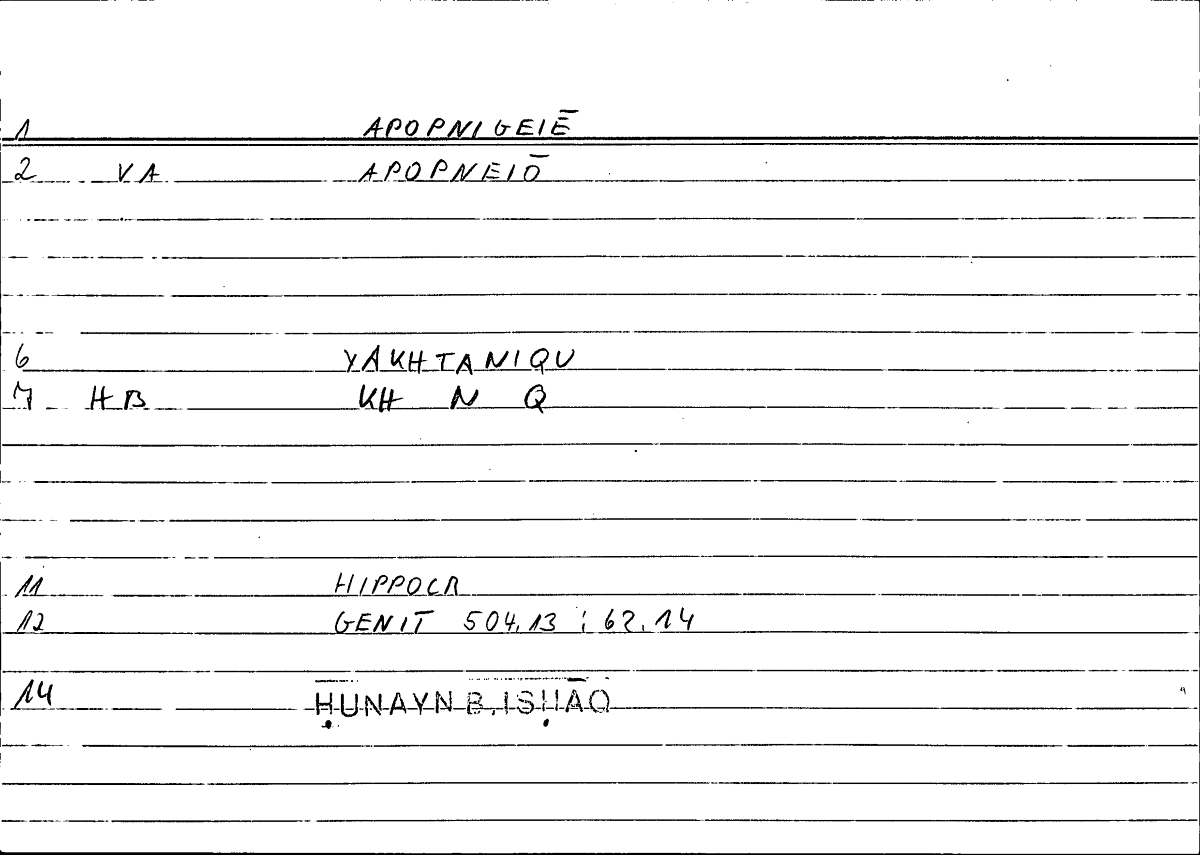 1 APOPNIGEIĒ
2 VA APOPNEIŌ
6 YAKHTANIQU
7 HB KH N Q
11 HIPPOCR
12 GENIT 504.13 ; 62.14
14 ḤUNAYN B. ISḤĀQ